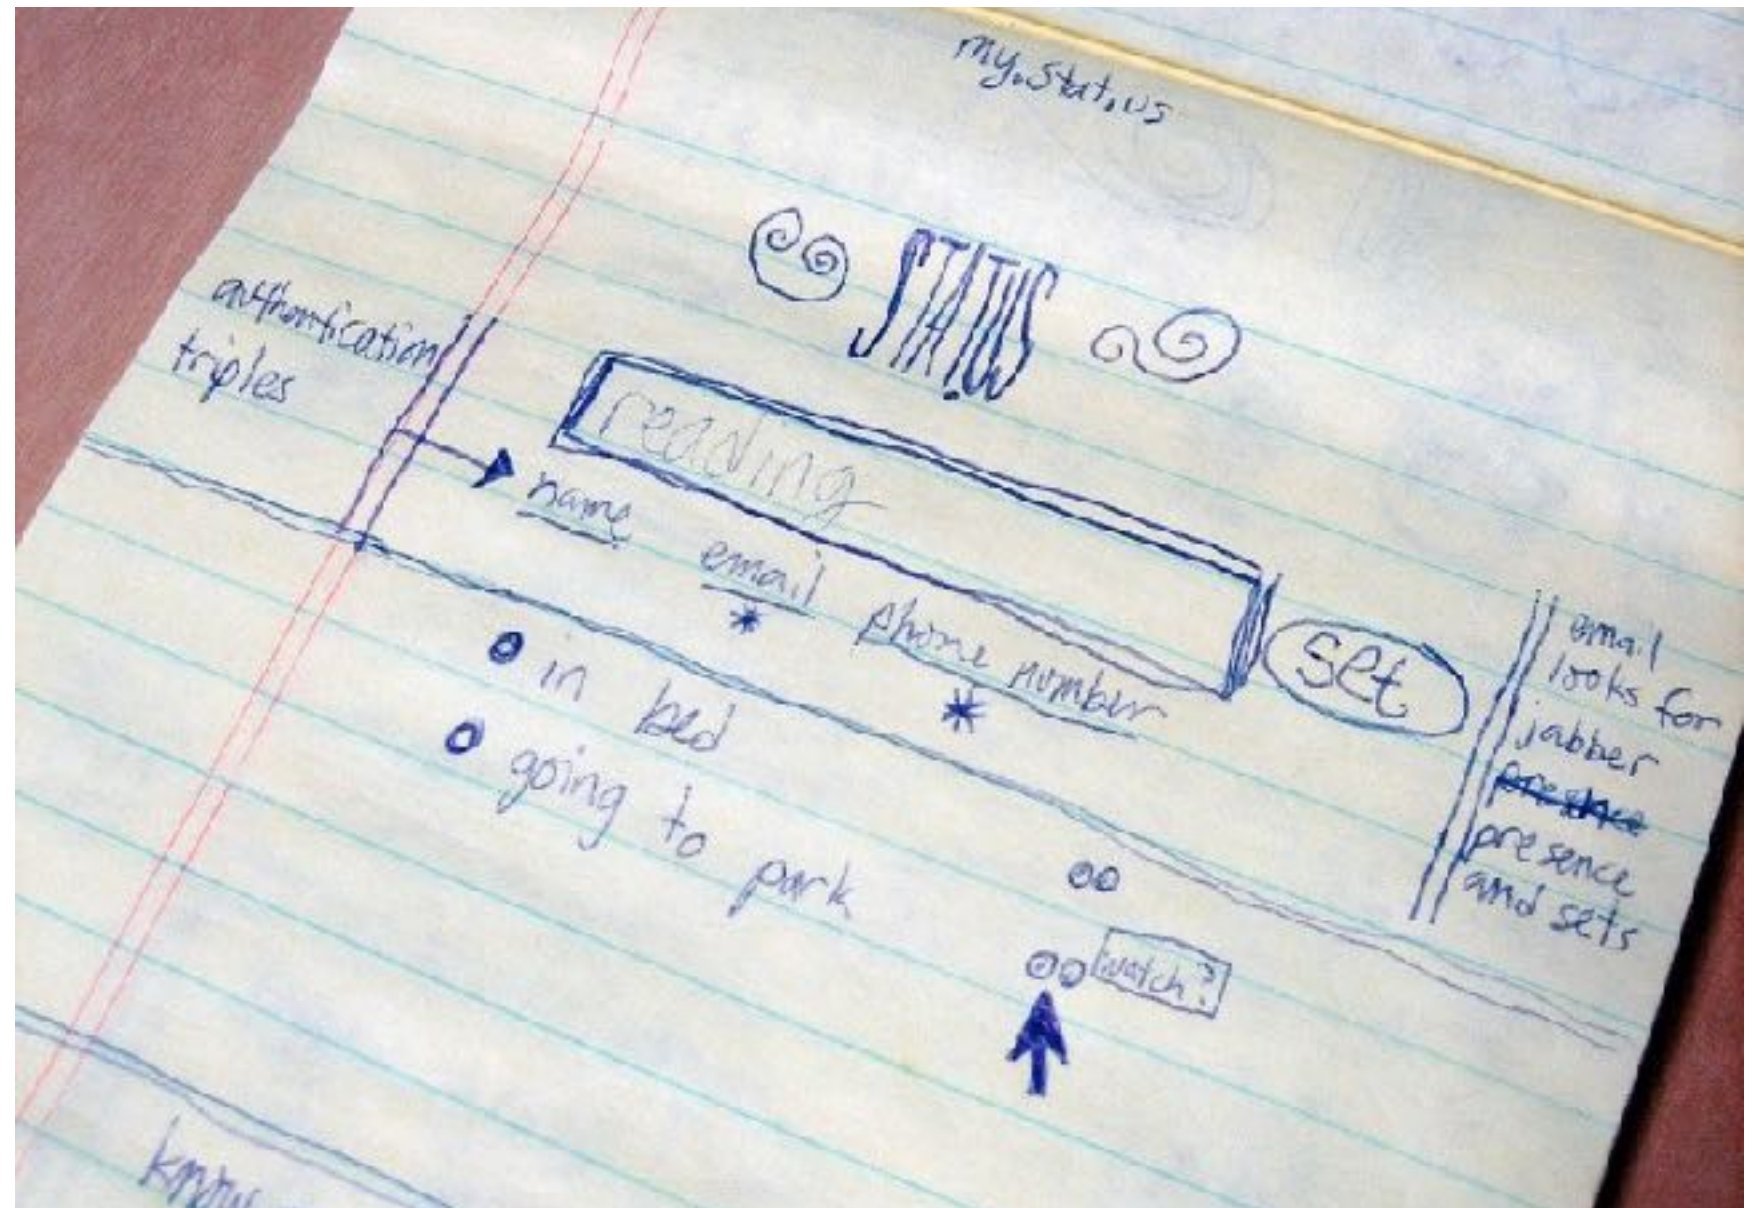 my.stat.us
STAT.US
authentication
triples
reading
name email phone number
set
in bed
going to park
email
looks for
jabber
presence
presence
and sets
watch?